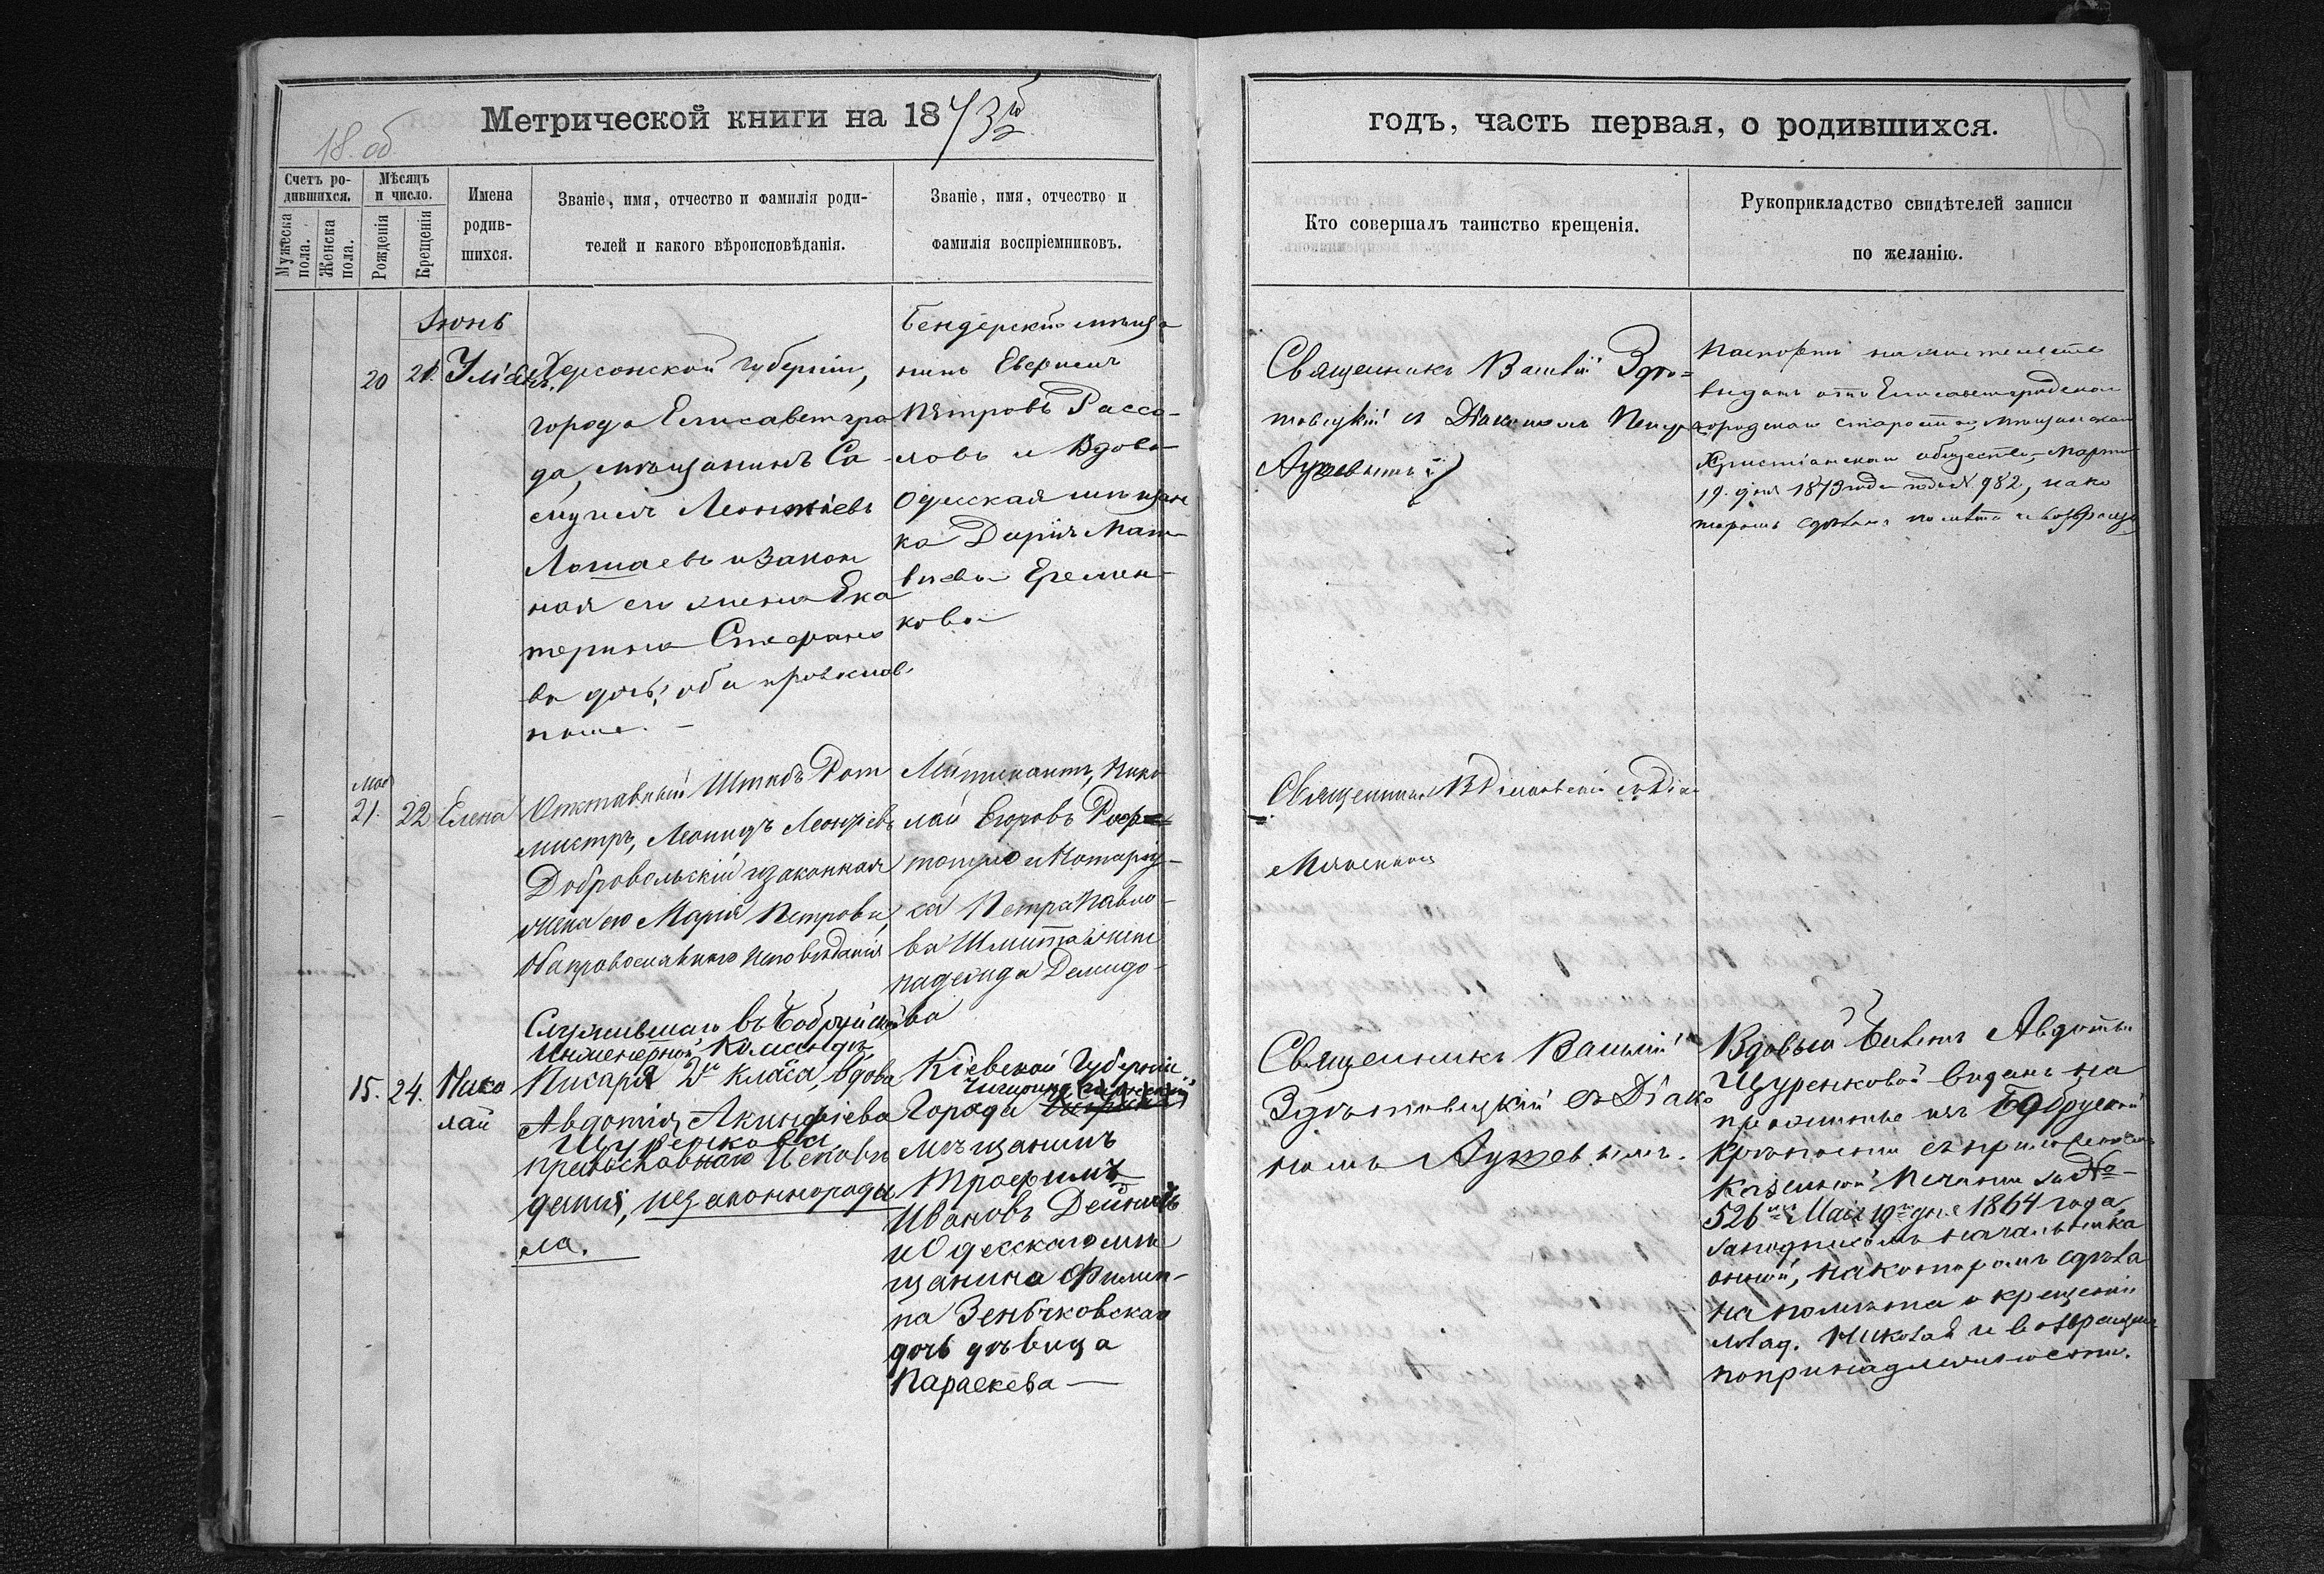 18. об
Метрической книги на 1873й
годъ, часть первая, о родившихся.
Счетъ родившихся.
Мужеска пола.
Женска пола.
Мѣсяцъ и число.
Рожденія
Крещенія
Имена
родив-
шихся.
Званіе, имя, отчество и фамилія роди-
телей и какого вѣроисповѣданія.
Званіе, имя, отчество и
фамилія воспріемниковъ.
Кто совершалъ таинство крещенія.
Рукоприкладство свидѣтелей записи
по желанію.
Іюнь
20
21.
Херсонской губерніи,
города Елисаветгра
да, мѣщанинъ Са-
муилъ Леонтіевъ
Лошаевъ и закон
ная его жена Ека
терина Стефано
ва дочь; оба православ
ные. -
Бендерскій мѣща
нинъ
Петровъ Рассо-
ловъ и вдова
Одесская мѣщан
ка Дарія Мат-
виева Еремен-
кова
Священникъ Василій Здра-
товецкій съ Діакономъ
Паспортъ на жительство
выданъ отъ Елисаветградскаго
городскаго старосты, мѣщанскаго
Христіанскаго общества, Марта
19. дня 1873 года подъ № 982, на ко
торомъ сдѣлана помѣта и возвращ
Мая
21.
22
Елена
Отставный Штабъ Рот
мистръ, Леонидъ Леонтіевъ
Добровольскій и законная
жена его Марія Петрова,
оба православнаго исповѣданія
Николай Егоровъ
и Нотаріу-
са Петра Павло-
ва жена
Надежда Демидо-
ва
Священникъ съ Діа
15.
24.
Нико
лай
Служившаго въ Бобруйской
Инженерной Командѣ
Писаря 2го класса, вдова
Авдотія Акинфіева
Щуренкова
православнаго исповѣ
данія, незаконнороди
ла.
Кіевской Губерніи
Города
мѣщанинъ
Трофимъ
Ивановъ
и Одесскаго мѣ
щанина Филип-
па Зенбчковская
дочь дѣвица
Параскева —
Священникъ Василій
Здратовецкій съ Діако
номъ
Вдовый билетъ Авдотьи
Щуренковой выданъ на
прожитье изъ Бобруской
крѣпости съ приложеніемъ
казенной печати за №
526 Мая 19го дня 1864 года
за подписомъ начальника
оной, на которомъ сдѣла
на помѣта о крещеніи
млад. Николая и возвращенъ
по принадлежности.